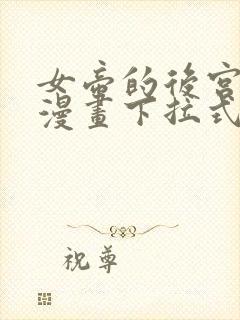 女帝的後宮
漫畫下拉式
祝尊